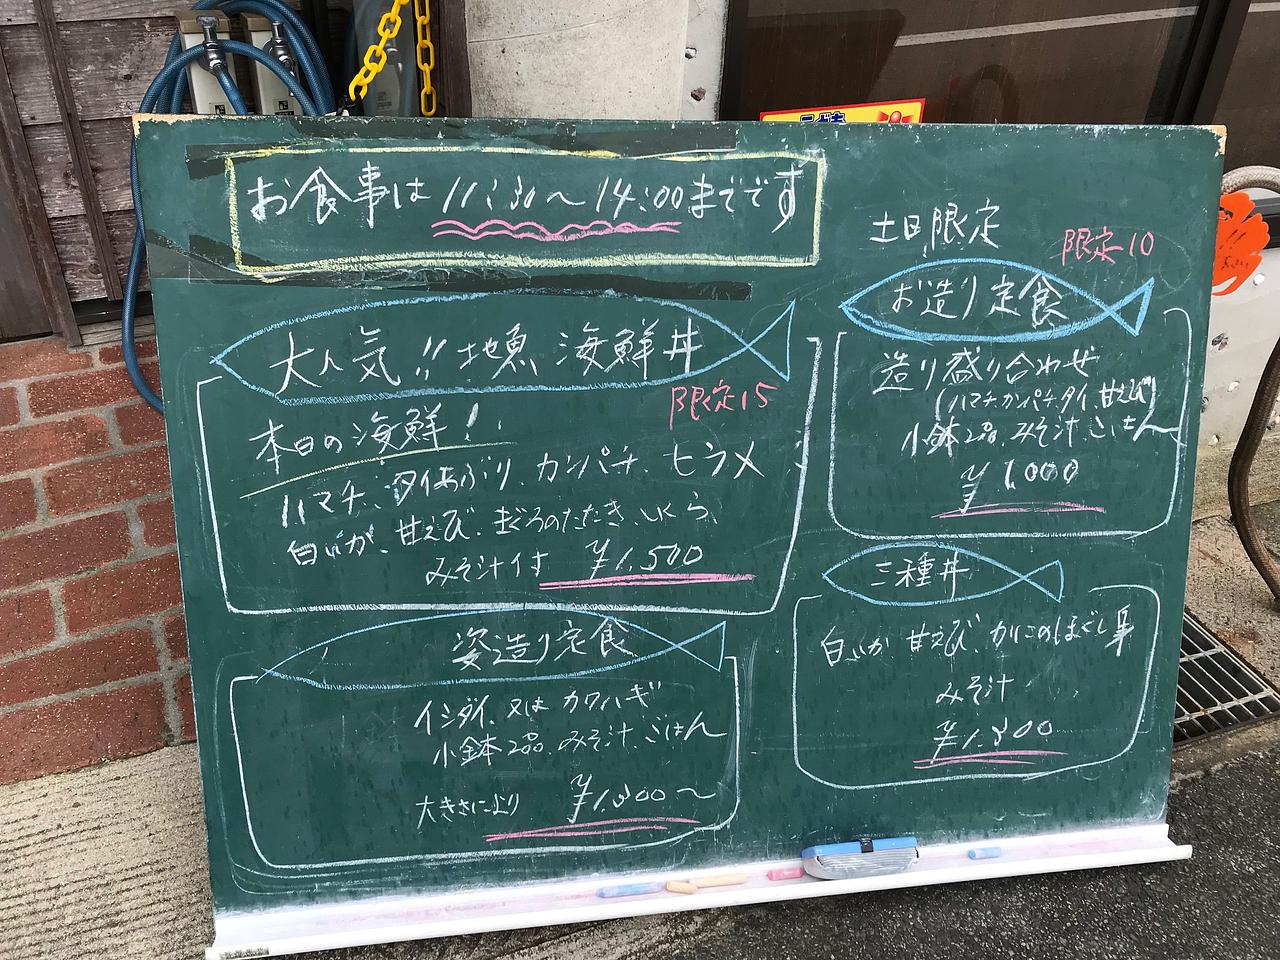 お食事は 11:30～14:00までです
大人気!! 地魚 海鮮丼
限定15
本日の海鮮!
ハマチ、タイあぶり、カンパチ、ヒラメ
白いか、甘えび、まぐろのたたき、いくら、
みそ汁付 ¥1,500
姿造り定食
イシダイ、又は カワハギ
小鉢2品、みそ汁、ごはん
大きさにより
土日限定
限定10
お造り定食
造り盛り合わせ
(ハマチ、カンパチ、タイ、甘えび)
小鉢2品、みそ汁、ごはん
¥1,000
三種丼
白いか 甘えび、カニのほぐし身
みそ汁